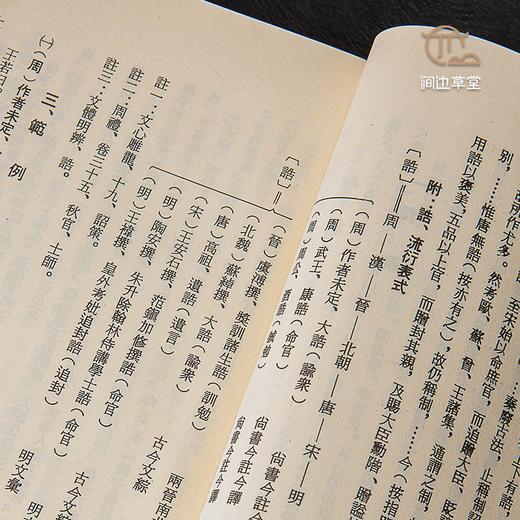 澗边草堂
至宋始以命庶官，而追贈大臣、貶
然考歐、蘇、曾、王諸集，通謂之制，
別，……惟唐無誥（按亦有之），故仍稱制，……今（按指
用誥以褒美，五品以上官，而贈封其親，及賜大臣勳階、贈謚
附 誥、流衍表式
〔誥〕＝周—漢—晉—北朝—唐—宋—明
（周）作者未定、大誥（諭衆）尙書今註今譯
（周）武王、康誥（命官）尙書今註今譯
（周）周公、酒誥（誡勉）尙書今註今譯
〔誥〕＝
（晉）虞溥撰、獎訓諸生誥（訓勉）兩晉南
（北魏）蘇綽撰、大誥（諭衆）
（唐）高祖、遺誥（遺言）
（宋）王安石撰、范鎭加修撰誥（命官）古今文綜
（明）陶安撰、朱升除翰林侍講學士誥（命官）古今文綜
（明）王褘撰、皇外考妣追封誥（追封）明文彙
註一：文心雕龍，十九，詔策。
註二：周禮，卷三十五，秋官，士師。
註三：文體明辨，誥。
三、範 例
㈠（周）作者未定、
王若曰